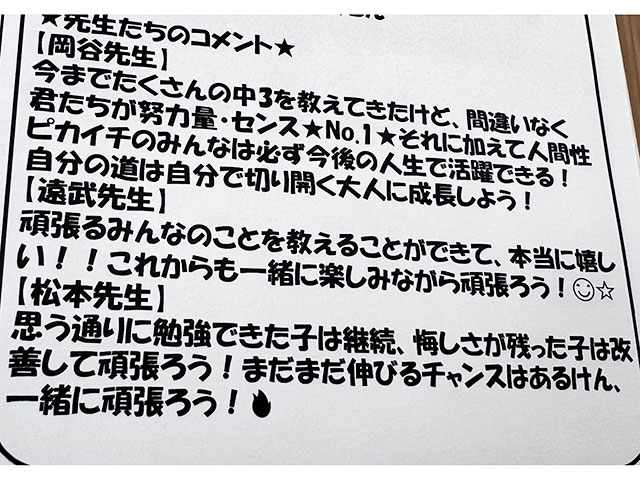 ★先生たちのコメント★
【岡谷先生】
今までたくさんの中3を教えてきたけど、間違いなく
君たちが努力量・センス★No.1★それに加えて人間性
ピカイチのみんなは必ず今後の人生で活躍できる！
自分の道は自分で切り開く大人に成長しよう！
【遠武先生】
頑張るみんなのことを教えることができて、本当に嬉し
い！！これからも一緒に楽しみながら頑張ろう！☺☆
【松本先生】
思う通りに勉強できた子は継続、悔しさが残った子は改
善して頑張ろう！まだまだ伸びるチャンスはあるけん、
一緒に頑張ろう！🔥